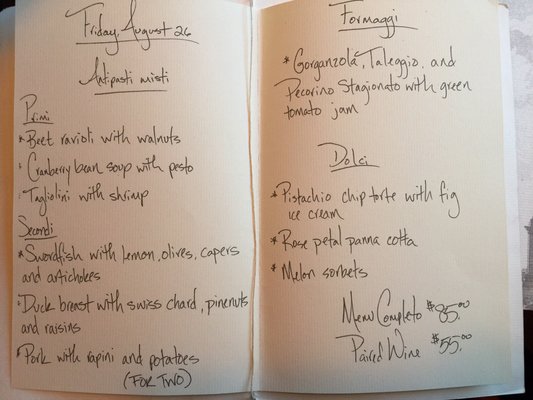 Friday, August 26
Antipasti misti
Primi
* Beet ravioli with walnuts
* Cranberry bean soup with pesto
* Tagliolini with shrimp
Secondi
* Swordfish with lemon, olives, capers
and artichokes
* Duck breast with swiss chard, pinenuts
and raisins
* Pork with rapini and potatoes
(FOR TWO)
Formaggi
* Gorganzola, Taleggio, and
Pecorino Stagionato with green
tomato jam
Dolci
* Pistachio chip torte with fig
ice cream
* Rose petal panna cotta
* Melon sorbets
Menu Completo $85.00
Paired Wine $55.00